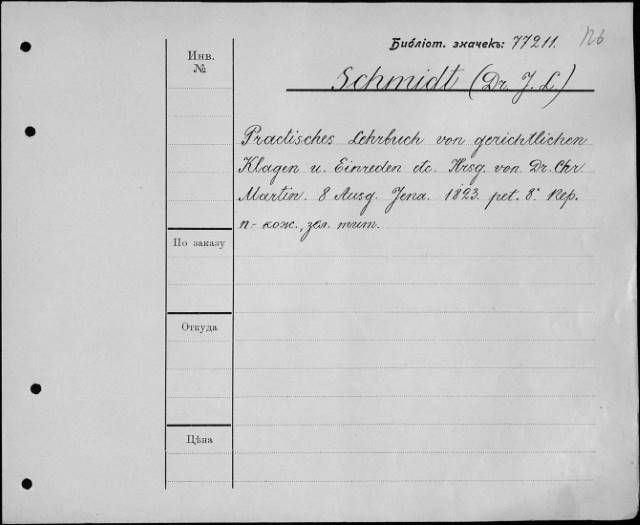 Библіот. значекъ: 77211. Пб
Инв. №
Schmidt (Dr. J. L.)
Practisches Lehrbuch von gerichtlichen
Klagen u. Einreden etc. Hrsg. von Dr. Chr
Martin. 8 Ausg. Jena. 1823. pet. 8° Пер.
п.- кож., зол. тит.
По заказу
Откуда
Цѣна